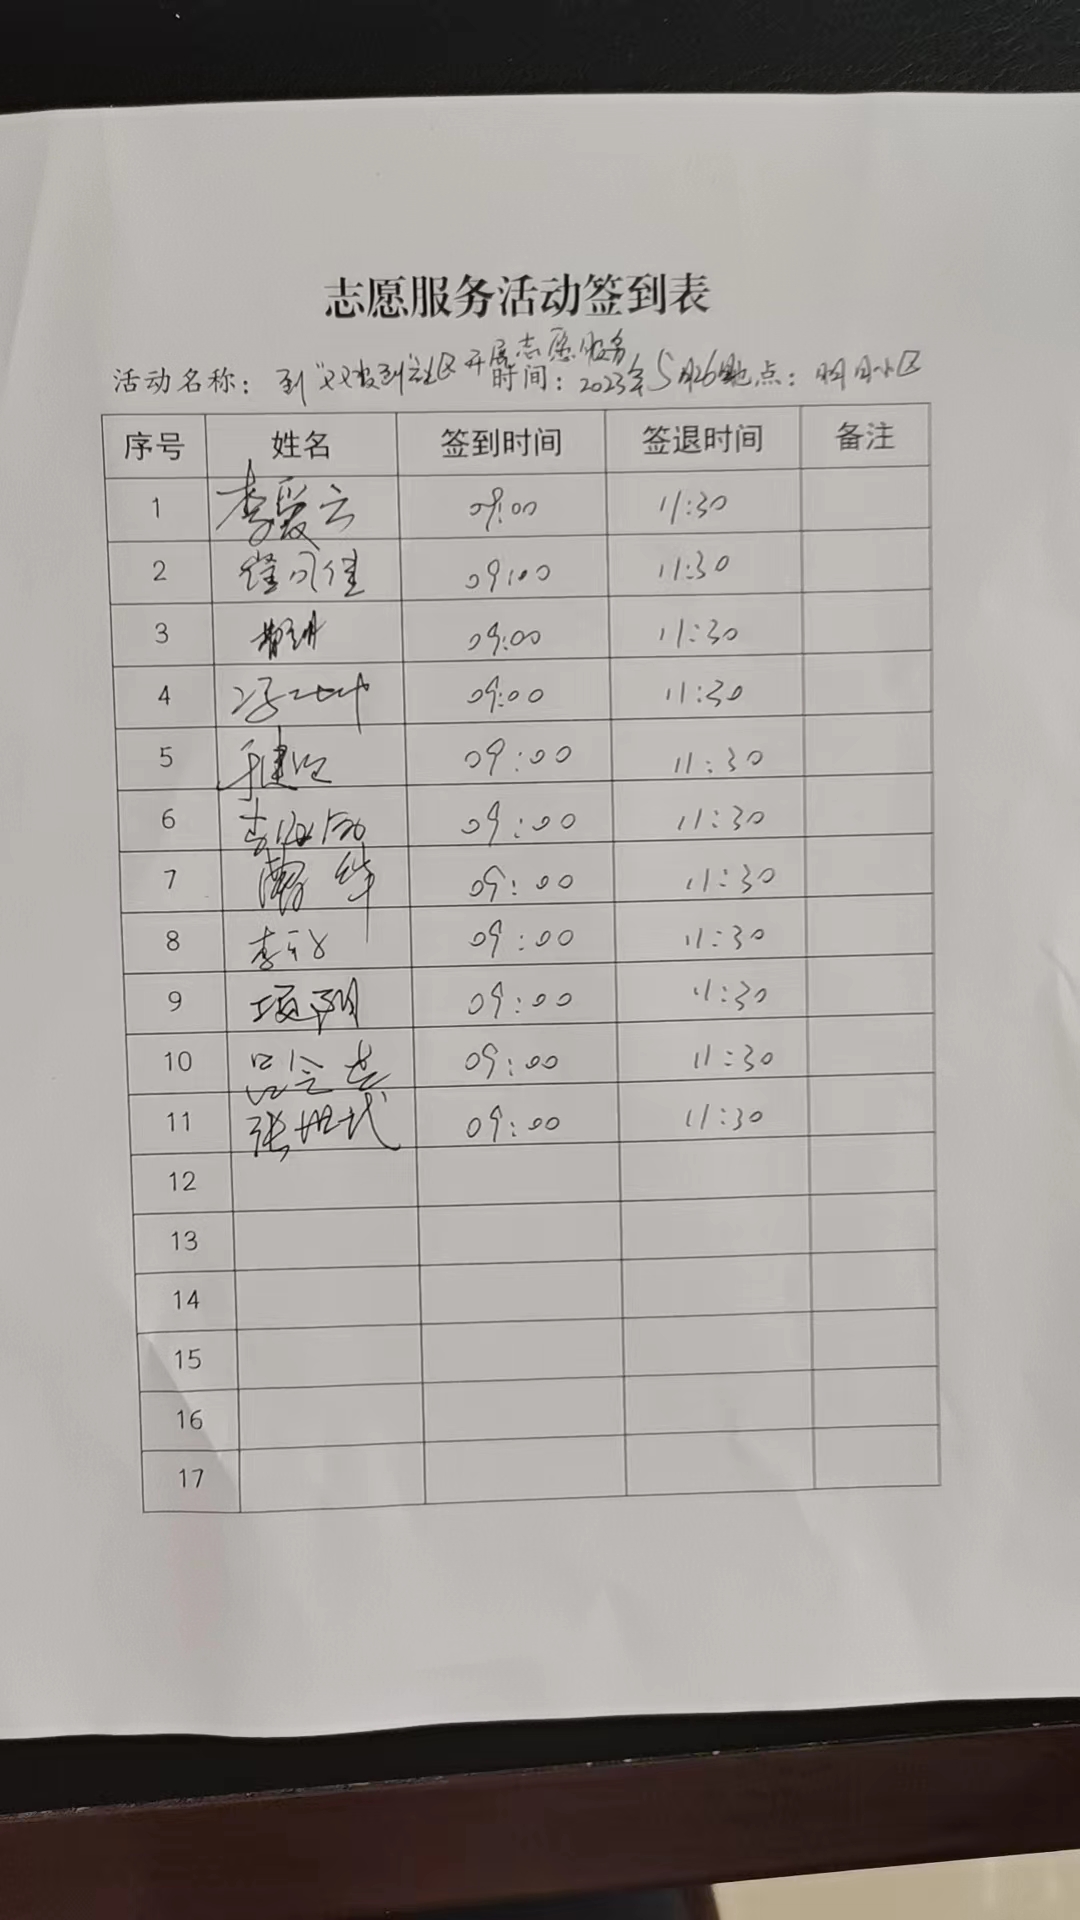 志愿服务活动签到表
活动名称：到"双报到"社区开展志愿服务 时间：2023年5月26日 地点：明月小区
序号 姓名 签到时间 签退时间 备注
1 李爱云 09:00 11:30
2 09:00 11:30
3 09:00 11:30
4 09:00 11:30
5 09:00 11:30
6 09:00 11:30
7 09:00 11:30
8 09:00 11:30
9 项阳 09:00 11:30
10 09:00 11:30
11 09:00 11:30
12
13
14
15
16
17